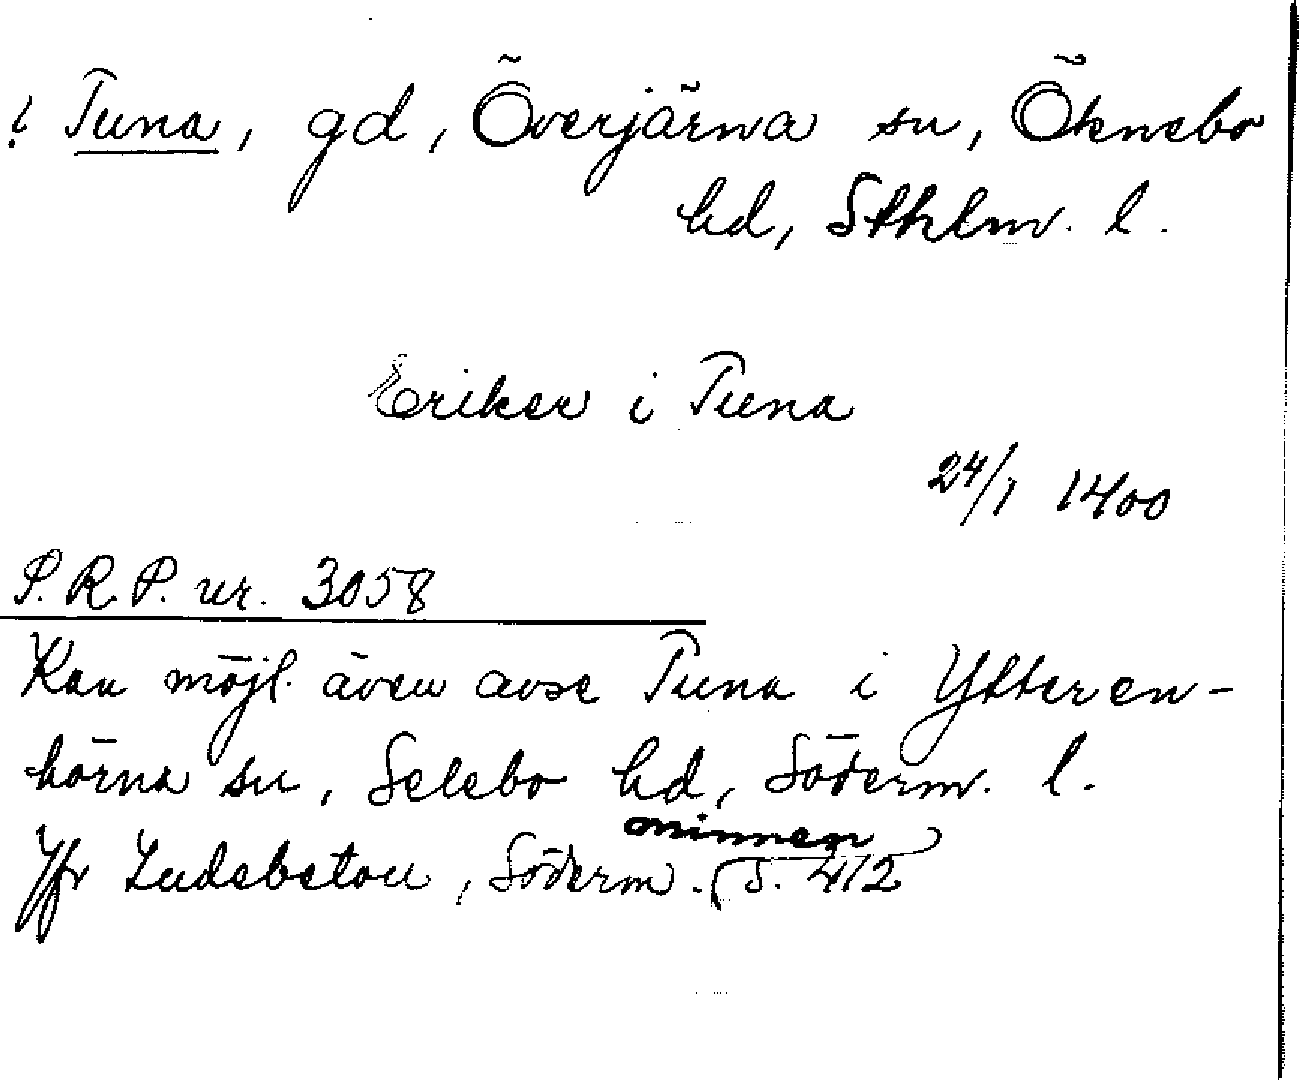 ? Tuna, gd, Överjärna sn, Öknebo
hd, Sthlm. l.
Eriker i Tuna
24/1 1400
S. R. P. nr. 3058
Kan möjl. även avse Tuna i Ytteren-
hörna sn, Selebo hd, Söderm. l.
Jfr Ludebetou, Söderm. minnen S. 412